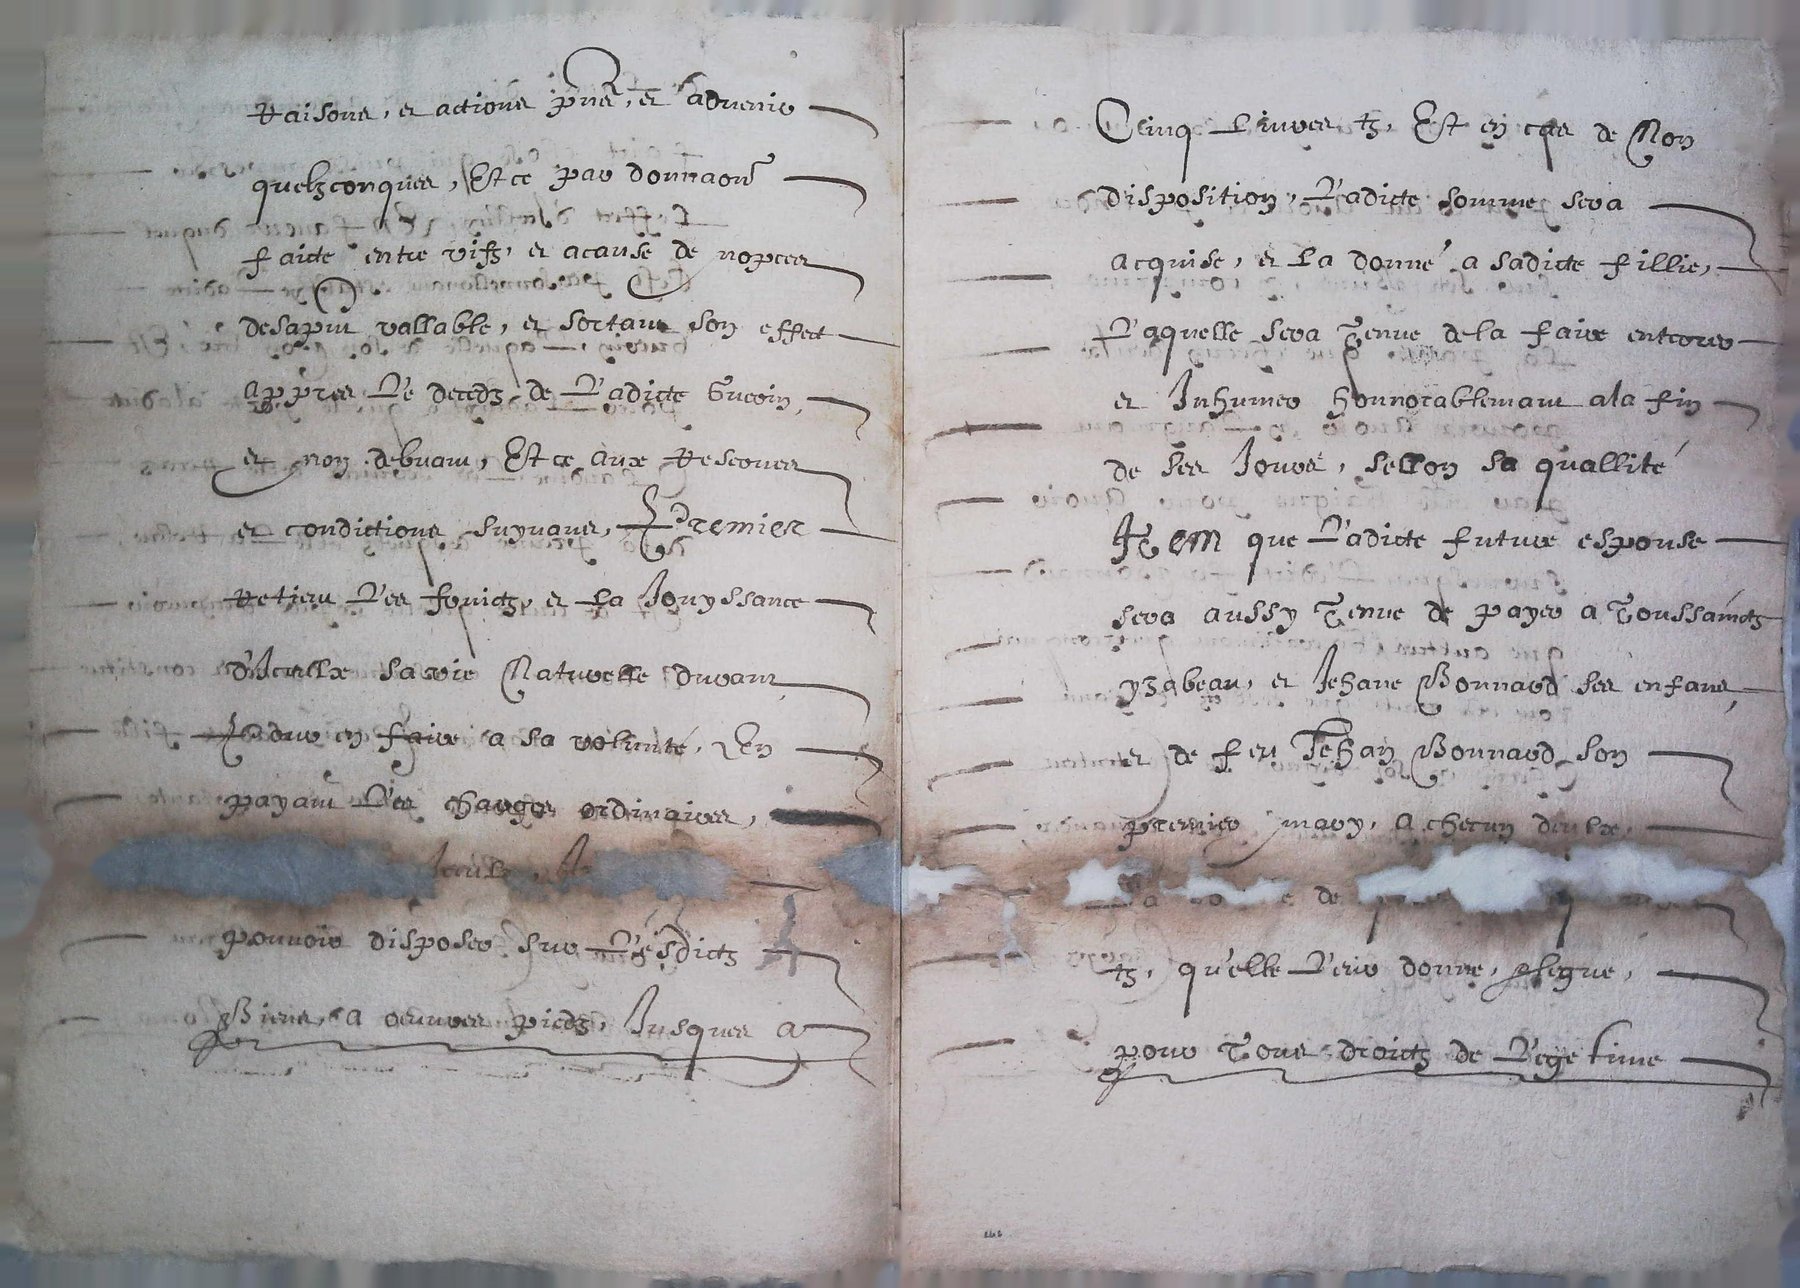 Raisons, et actions pñtes, et advenir
quelzconques, Et ce par donnaon̄
faicte entre vifz, et a cause de nopces
desapñt vallable, et sortant son effect
appres Le decedz de Ladicte Guerin,
et non debvant, Et ce aux Reserves
et condictions suyvans, Premier
Retient Les fruictz, et La Jouyssance
d'Iceulx sa vie Naturelle durant
Pour en faire a sa volunté, En
payant Les charges ordinaires,
Iceulx,
pouvoir disposer sur Lesdictz
Biens, a oeuvres piedz, Jusques a
Cinq Livres tz, Est en cas de Non
disposition, Ladicte somme sera
acquise, et La donne a sadicte fillie,
Laquelle sera Tenue de la faire enterrer
et Inhumer honnorablemant a la fin
de ses Jours, sellon sa quallité
Item que Ladicte future espouse
sera aussy Tenue de payer a Toussainctz
yzabeau, et Jehane Bonnard ses enfans,
et de feu Jehan Bonnard son
premier mary, a checun deulx,
La de
tz, qu'elle Leur donne, Legue,
pour Tous droictz de Legetime